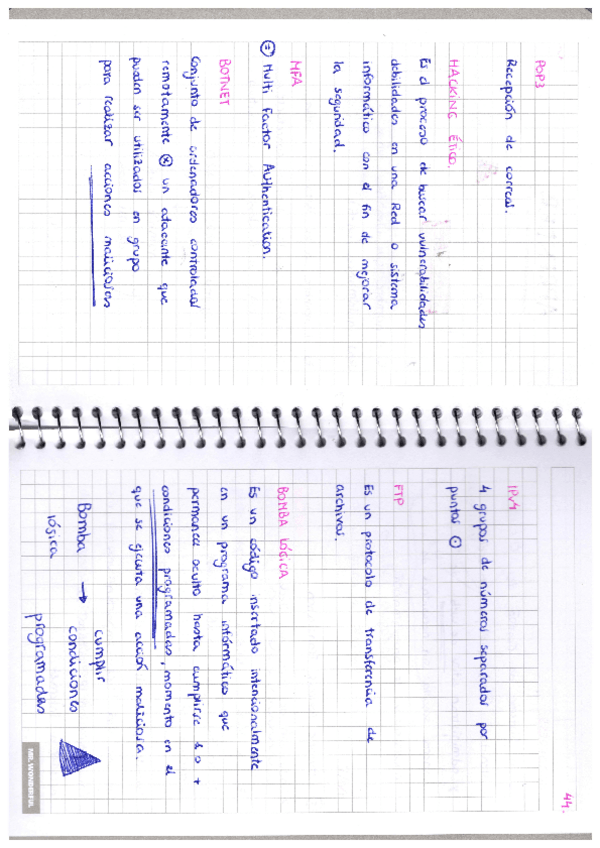 POP3
Recepción de correos.
HACKING ÉTICO.
Es el proceso de buscar vulnerabilidades
debilidades en una Red o sistema
informático con el fin de mejorar
la seguridad.
MFA
= Multi Factor Authentication.
BOTNET
Conjunto de ordenadores controlados
remotamente x un atacante que
pueden ser utilizados en grupo
para realizar acciones maliciosas
44.
IPv4
4 grupos de números separados por
puntos .
FTP
Es un protocolo de transferencia de
archivos.
BOMBA LÓGICA
Es un código insertado intencionalmente
en un programa informático que
permanece oculto hasta cumplirse 1 o +
condiciones programadas, momento en el
que se ejecuta una acción maliciosa.
Bomba lógica → cumplir condiciones programadas
MR. WONDERFUL